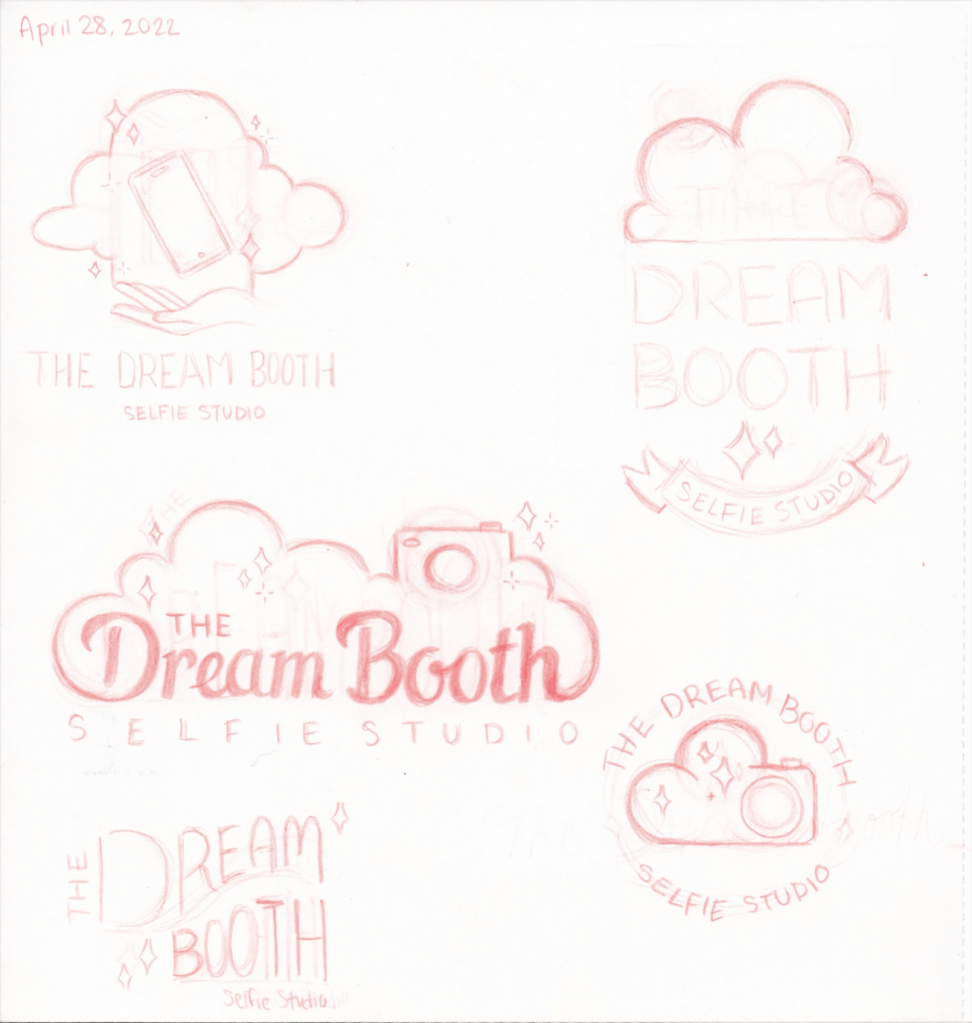 April 28, 2022
THE DREAM BOOTH
SELFIE STUDIO
THE
DREAM
BOOTH
SELFIE STUDIO
THE
THE
Dream Booth
SELFIE STUDIO
THE DREAM BOOTH
SELFIE STUDIO
THE
DREAM
BOOTH
Selfie Studio